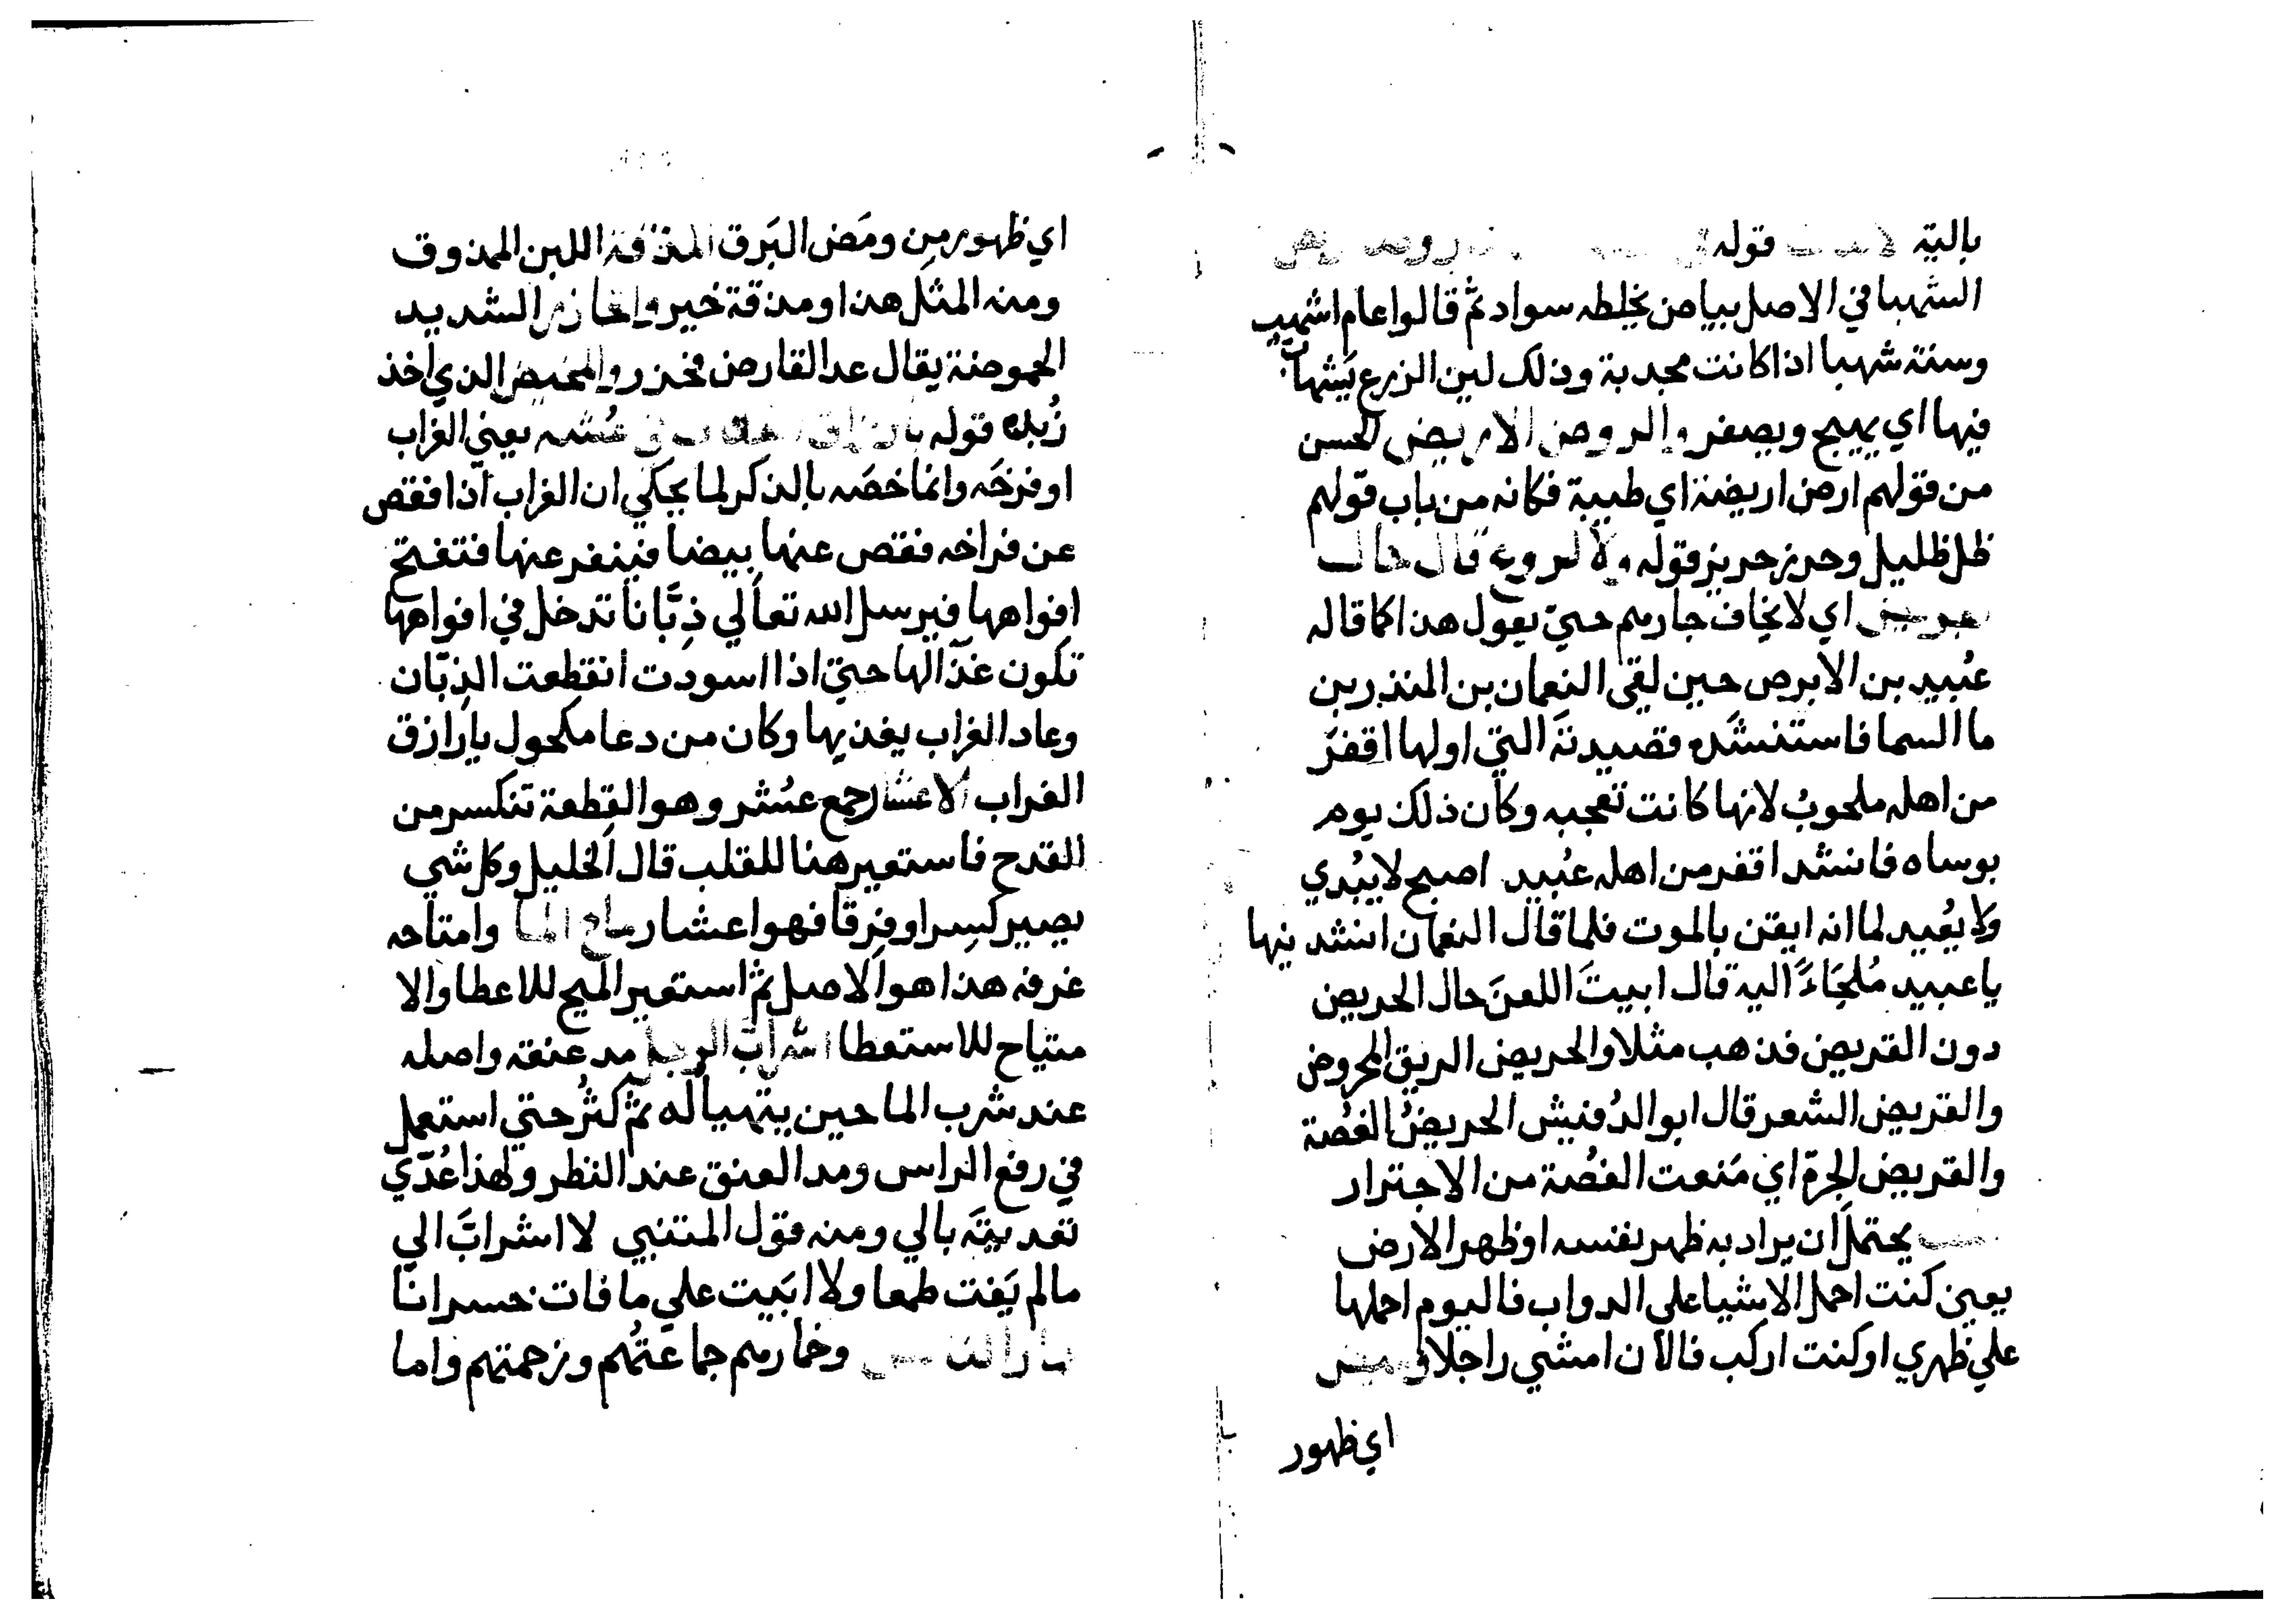 بالية قوله
الشهبا في الاصل بياض يخلطه سواد ثم قالوا عام اشهب
وسنة شهبا اذا كانت مجدبة وذلك لين الزرع يشهاب
فيها اي يهيج ويصفر والروض الاريض الحسن
من قولهم ارض اريضة اي طيبة فكانه من باب قولهم
ظل ظليل وحرز حريز قوله ولا لروع قال حالت
جريض اي لا يخاف جارهم حتي يعول هذا كما قاله
عَبيد بن الابرص حين لقي النعمان بن المنذر بن
ما السما فاستنشده قصيدته التي اولها اقفر
من اهله ملحوبُ لانها كانت تعجبه وكان ذلك يوم
بوساه فانشد اقفر من اهله عبيد اصبح لا يُبدي
ولا يُعيد لما انه ايقن بالموت فلما قال النعمان انشد نيها
يا عبيد مُلجَاءً اليه قال ابيتَ اللعنَ حال الجريض
دون القريض فذهب مثلا والجريض الريق المجروض
والقريض الشعر قال ابو الدُقيش الجريضُ الغُصة
والقريض الجرة اي مَنعت الغُصة من الاجترار
يحتمل ان يراد به ظهر نفسه او ظهر الارض
يعني كنت احمل الاشيا على الدواب فاليوم احملها
علي ظهري او كنت اركب فالان امشي راجلا وميض
اي ظهور
اي ظهور من ومَض البَرق المذقة اللبن الممذوق
ومنه المثل هذا ومذقة خير والحازر الشديد
الحموضة يقال عدا القارص فحزر والمخيض الذي اخذ
زُبده قوله في عُشه يعني الغراب
او فرخَه وانما خصَه بالذكر لما يحكي ان الغراب اذا فقص
عن فراخه فقص عنها بيضا فينفر عنها فتفتح
افواهها فيرسل الله تعالي ذِبَّانا تدخل في افواهها
تكون غذآ لها حتي اذا اسودت انقطعت الذبّان
وعاد الغراب يغذيها وكان من دعا مكحول يا رازق
الغراب الاعشار جمع عشر وهو القطعة تنكسر من
القدح فاستعير هنا للقلب قال الخليل وكل شي
يصير كسرا وفِرقا فهو اعشار ماح الما وامتاحه
غرفه هذا هو الاصل ثم استعير الميح للاعطا والا
متياح للاستعطا اشرابّ الرجل مد عنقه واصله
عند شرب الما حين يتهيا له ثم كثُر حتي استعمل
في رفع الراس ومد العنق عند النظر ولهذا عُدّي
تعديتَه بالي ومنه قول المتنبي لا اشرابّ الي
ما لم يَفت طمعا ولا ابَيت علي ما فات حسرانا
الناس وخمارهم جماعتُهم وزحمتهم واما